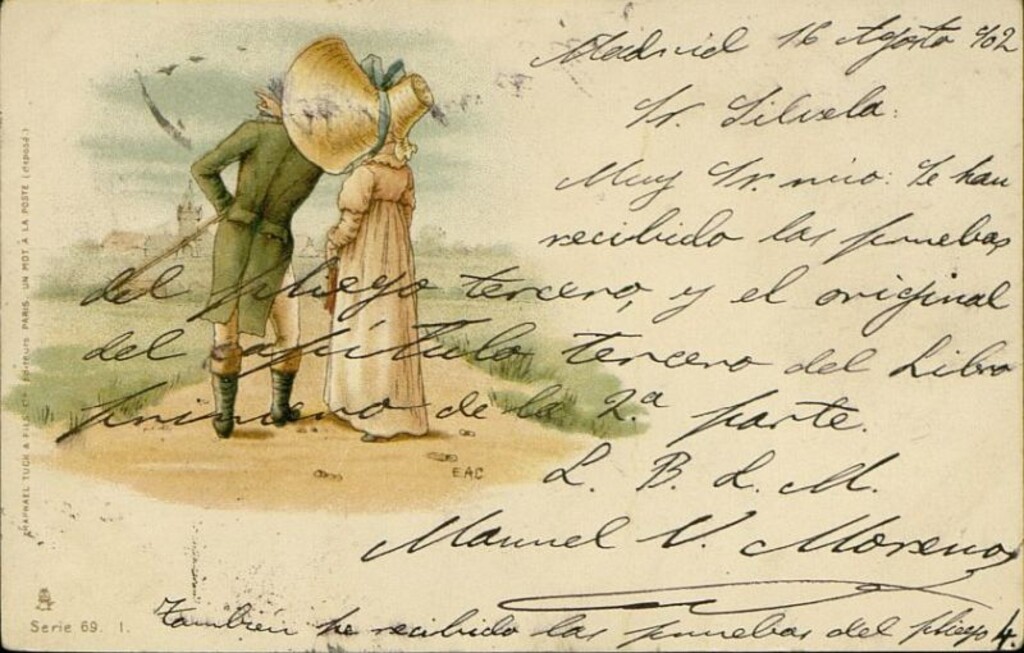 Madrid 16 Agosto 902
Sr. Silvela:
Muy Sr. mio: Se han
recibido las pruebas
del pliego tercero, y el original
del capítulo tercero del Libro
primero de la 2.ª parte.
L. B. L. M.
Manuel V. Moreno
También he recibido las pruebas del pliego 4.
EAC
RAPHAEL TUCK & FILS, Cie EDITEURS PARIS. UN MOT A LA POSTE (déposé.)
Serie 69. 1.